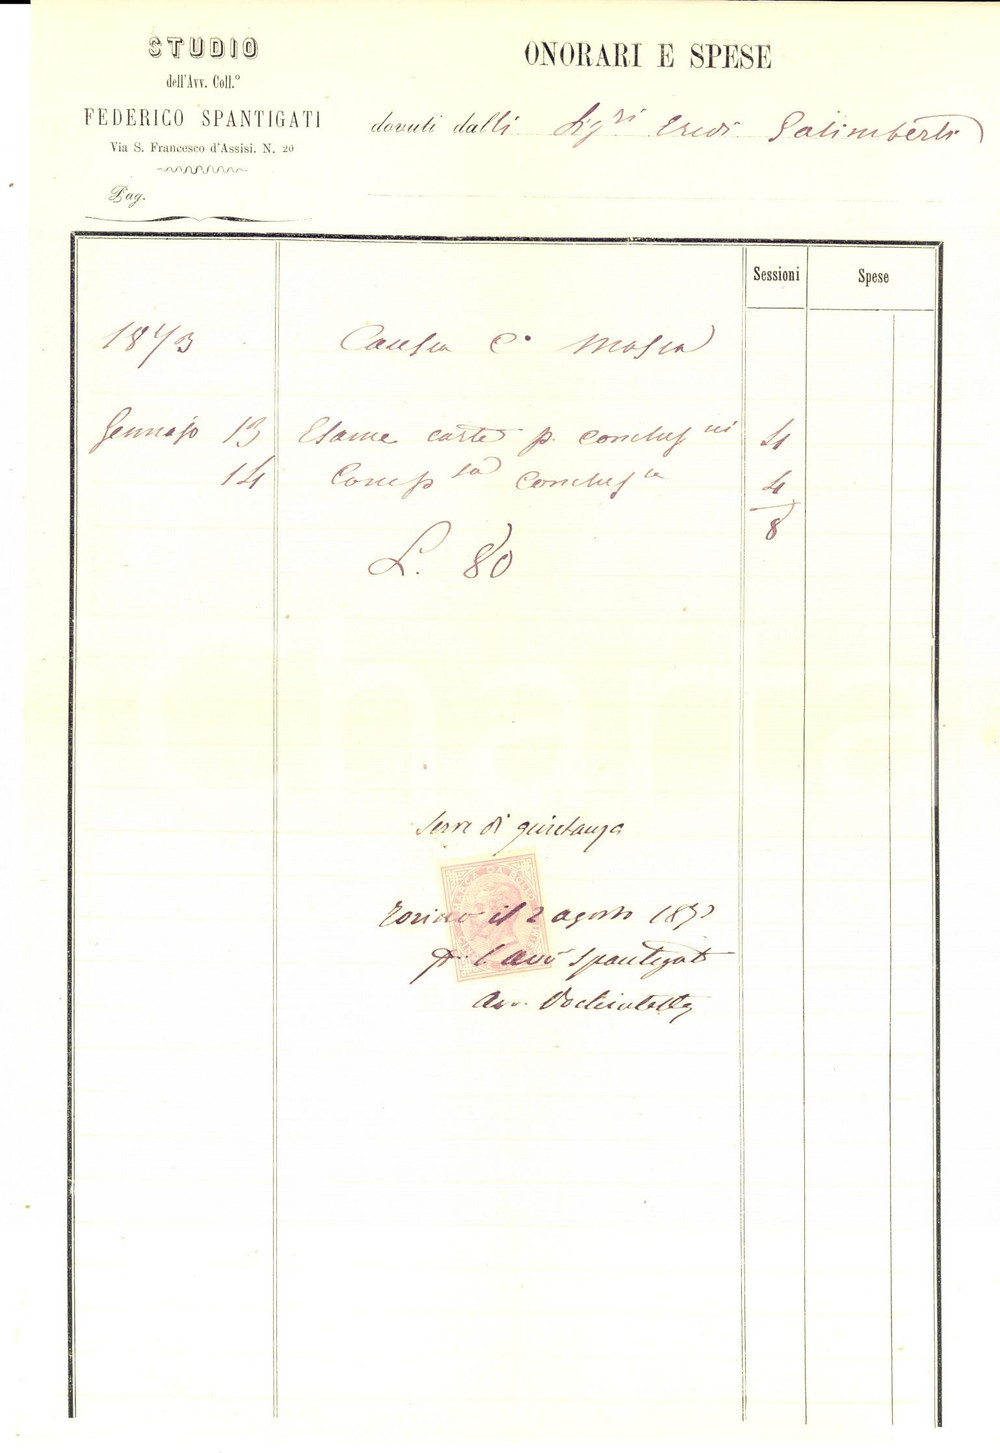 STUDIO
dell'Avv. Coll.º
FEDERICO SPANTIGATI
Via S. Francesco d'Assisi. N. 20
Pag.
ONORARI E SPESE
dovuti dalli Sigri Eredi Galimberti
Sessioni
Spese
1873 Causa Cº Mosca
Gennajo 13 Esame carte p. conclusni 4
14 Compsa conclusle 4
8
L. 80
Serve di quietanza
MARCA DA BOLLO
Torino il 2 agosto 1873
p. l'avv Spantigati
Avv.